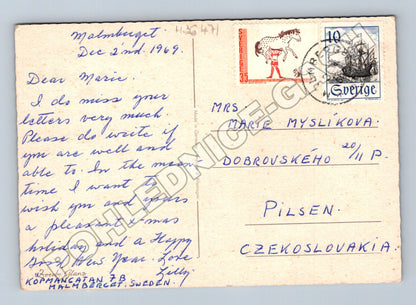 Malmberget
Dec 2nd. 1969.
Dear Marie.
I do miss your
letters very much.
Please do write if
you are well and
able to. In the mean-
time I want to
wish you and yours
a pleasant x-mas
holiday and a Happy
Good New Year. Love
Lilly.
KÖPMANGATAN 7B
MALMBERGET. SWEDEN.
10
Sverige
MRS.
MARIE MYSLÍKOVA.
DOBROVSKÉHO 20/II P.
PILSEN.
CZEKOSLOVAKIA.
POHLEDNICE.CZ